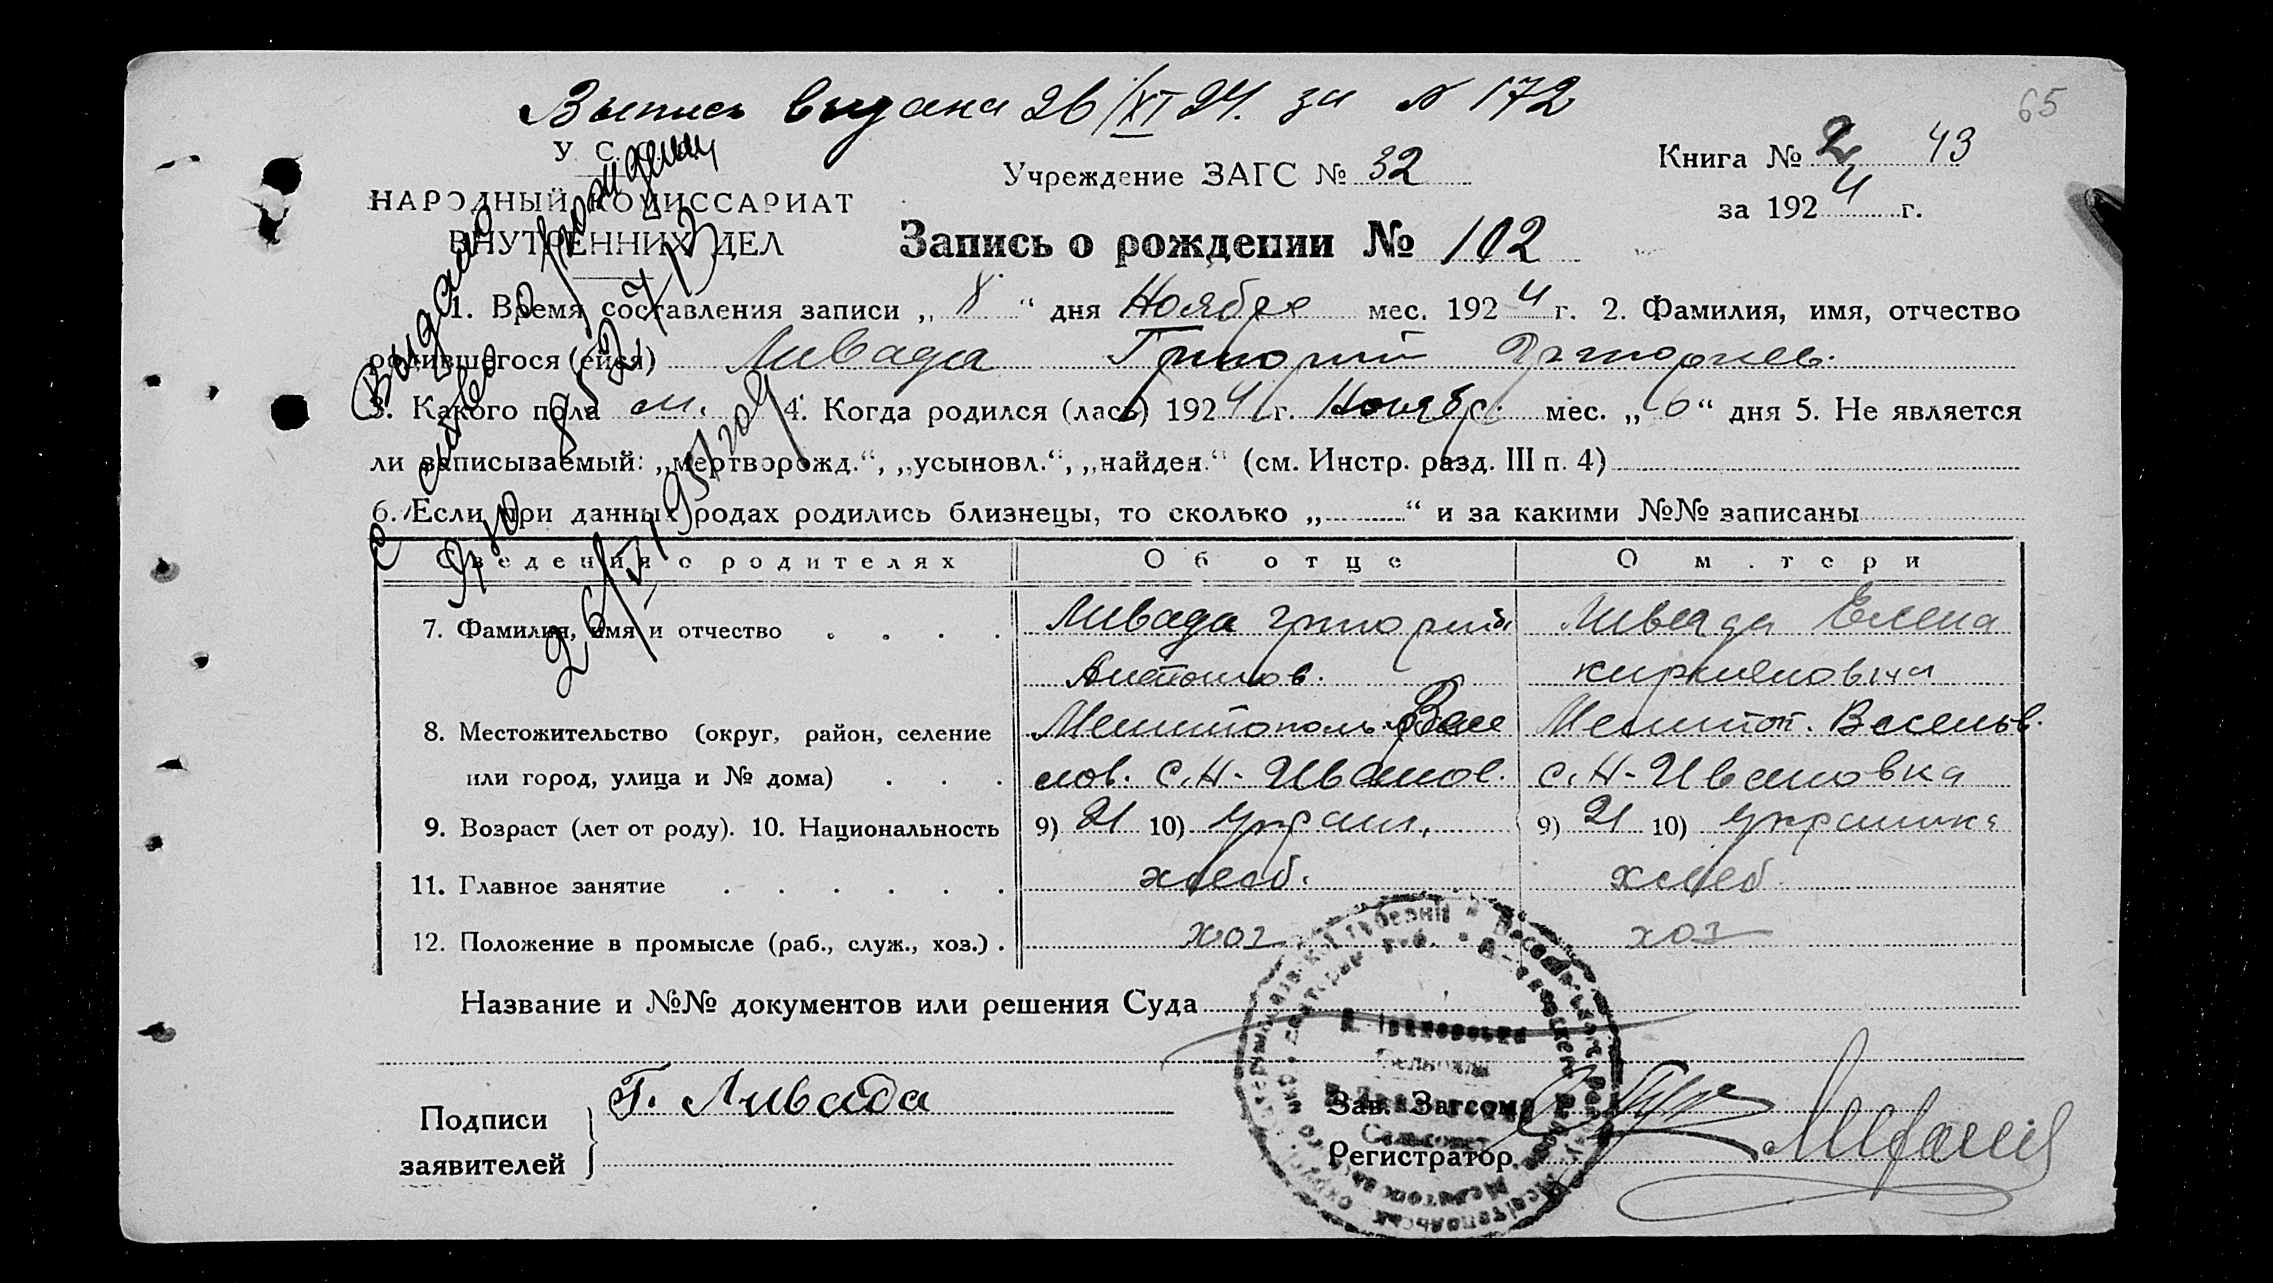 Выпись выдана 26/XI 24. за № 172
65
У. С.
Учреждение ЗАГС № 32
Книга № 2 43
за 1924 г.
НАРОДНЫЙ КОМИССАРИАТ
ВНУТРЕННИХ ДЕЛ
Запись о рождении № 102
1. Время составления записи „ 8 “ дня Ноября мес. 1924 г. 2. Фамилия, имя, отчество
родившегося (ейся) Ливада Григорий Григориев.
3. Какого пола м. 4. Когда родился (лась) 1924 г. Ноябр. мес. „ 6 “ дня 5. Не является
ли записываемый: „мертворожд.“, „усыновл.“, „найден.“ (см. Инстр. разд. III п. 4)
6. Если при данных родах родились близнецы, то сколько „ “ и за какими №№ записаны
Сведения о родителях Об отце О м.тери
7. Фамилия, имя и отчество Ливада Григорий Ливада Елена
Антонов. Кириановна
8. Местожительство (округ, район, селение Мелитополь Весе Мелитоп. Веселов.
или город, улица и № дома) лов. с. Н-Иванов. с. Н-Ивановка
9. Возраст (лет от роду). 10. Национальность 9) 21 10) Украин. 9) 21 10) Украинка
11. Главное занятие хлеб. хлеб.
12. Положение в промысле (раб., служ., хоз.) хоз хоз
Название и №№ документов или решения Суда
Подписи заявителей Г. Ливада
Зав. Загсом
Регистратор
Выдано
о рождении
26/V 1951 год